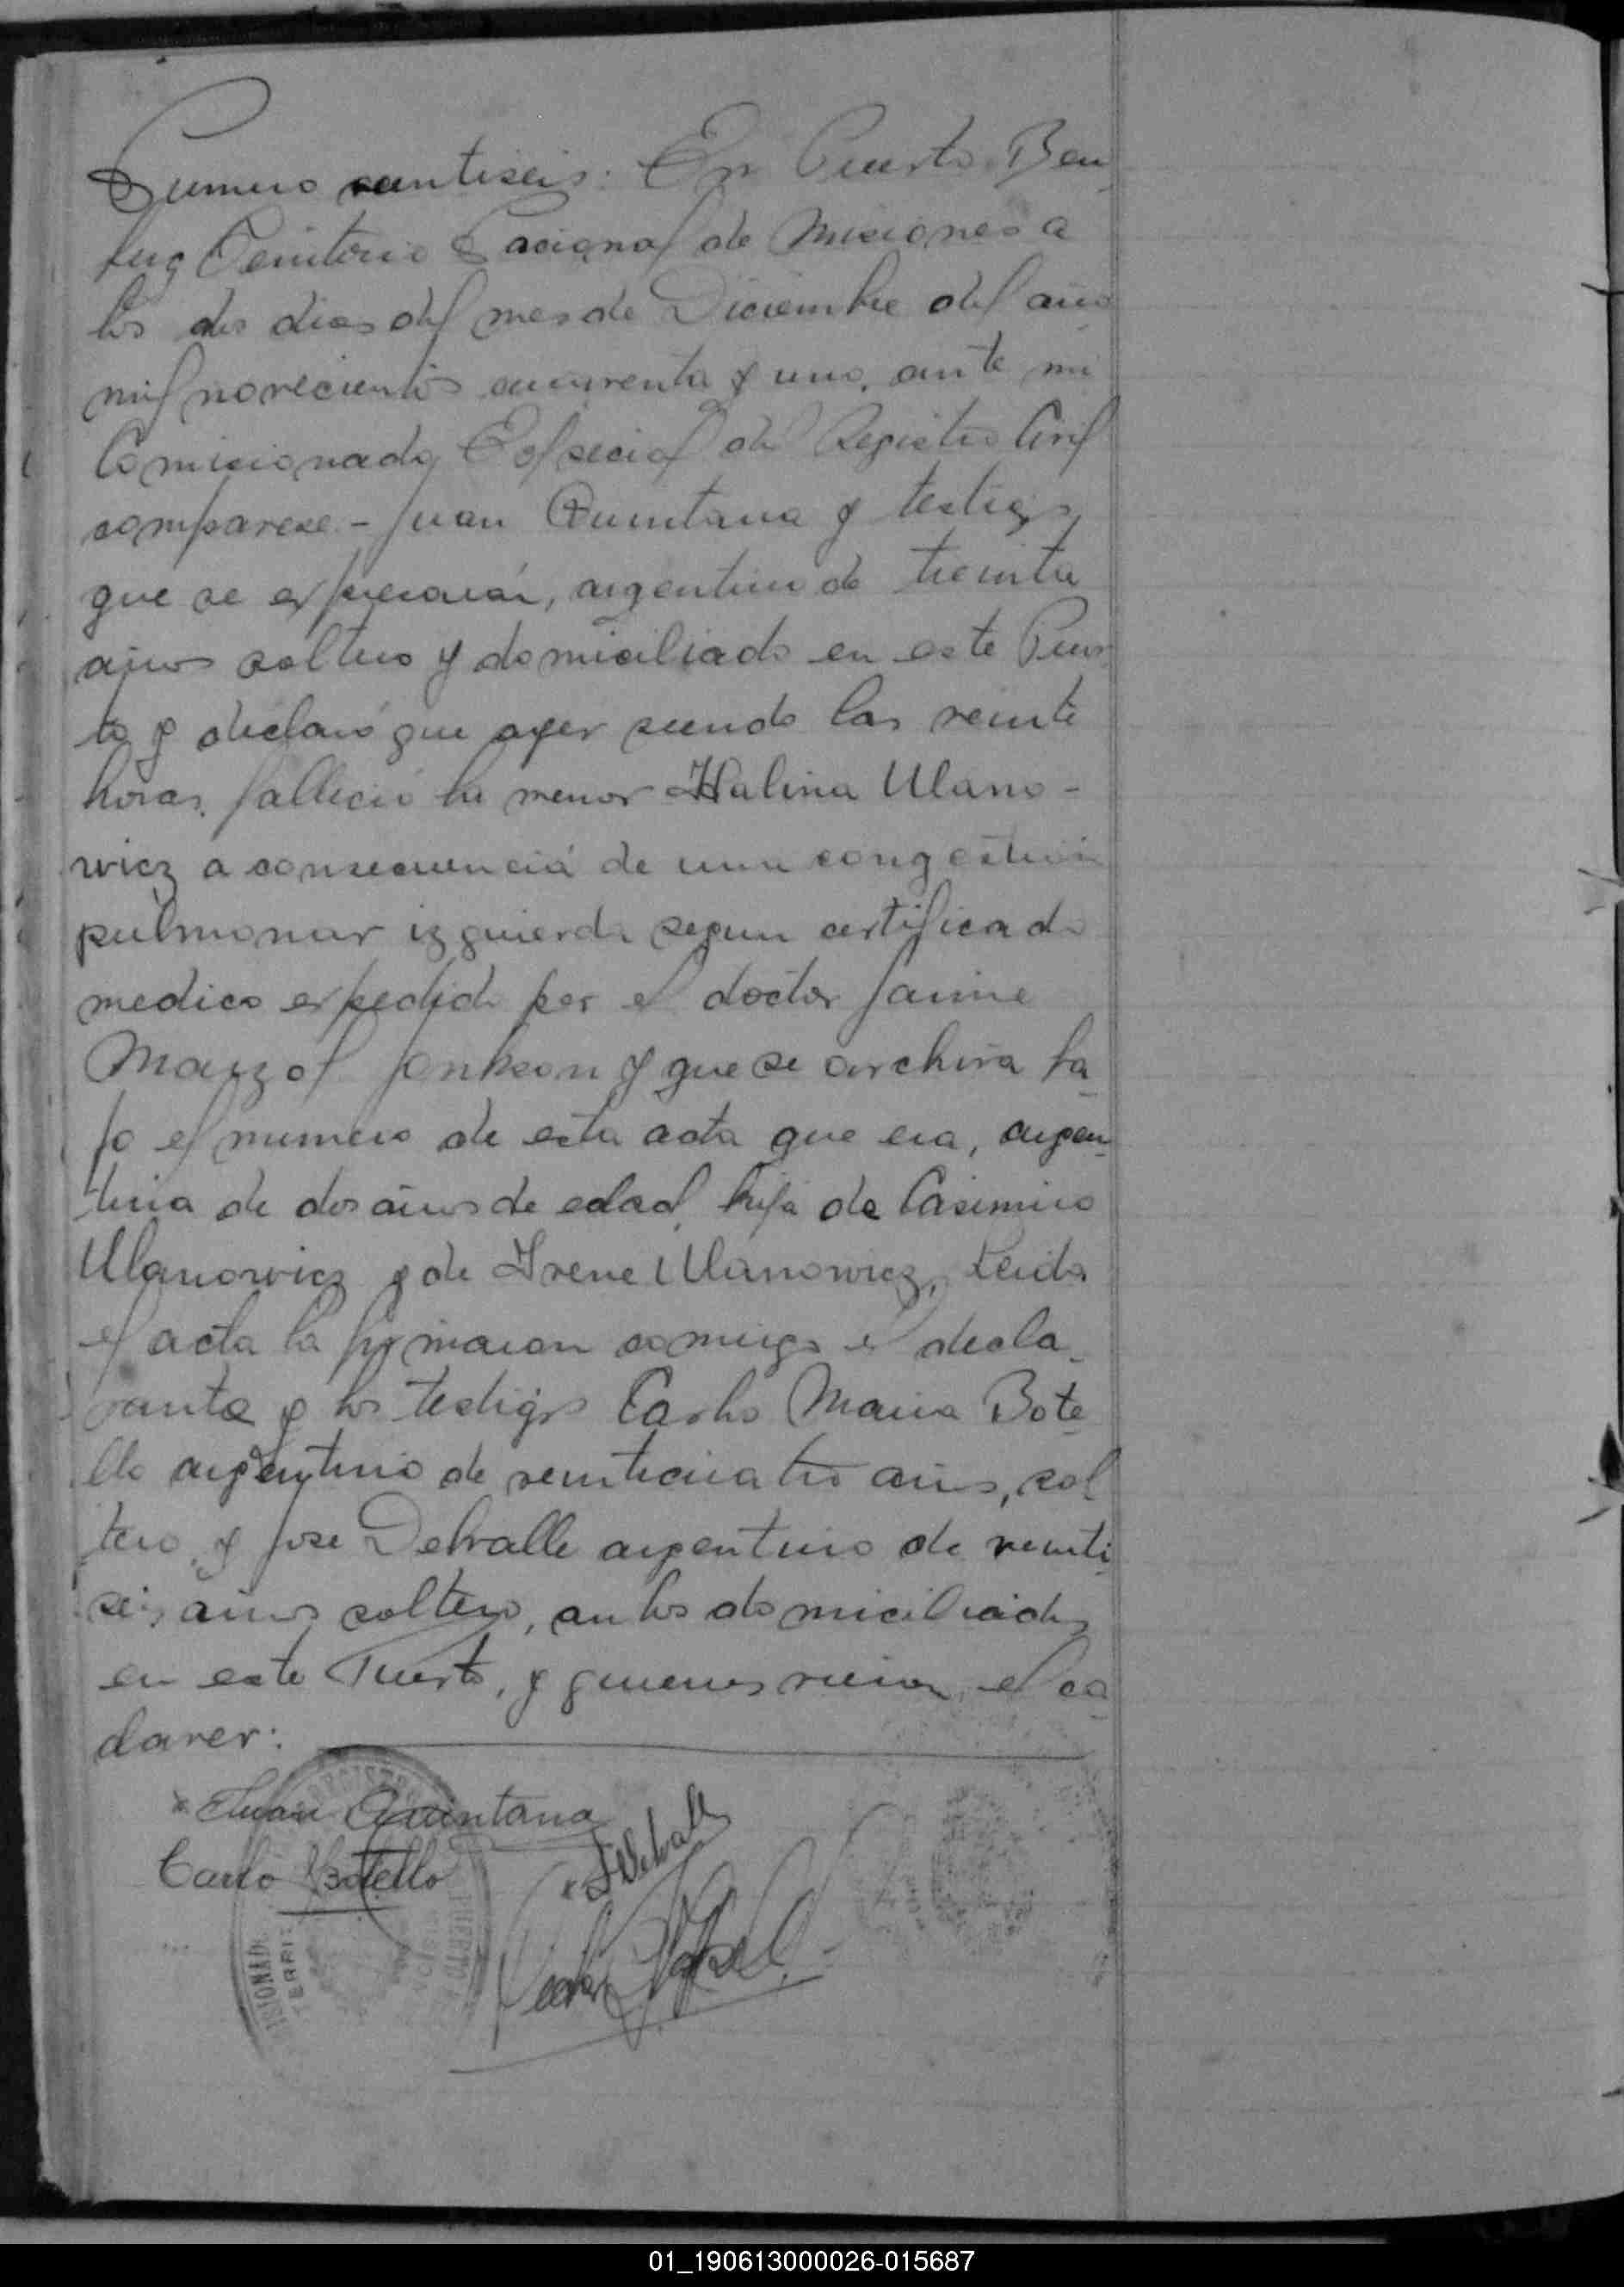 Numero veintiseis: En Puerto Ben
berg Territorio Nacional de Misiones a
los dos dias del mes de Diciembre del año
mil novecientos cuarenta y uno, ante mi
Comisionado Especial del Registro Civil
comparece - Juan Quintana y testigos
que se expresarán, argentino de treinta
años soltero y domiciliado en este Puer
to y declaró que ayer siendo las veinte
horas, fallecio la menor Halina Ulano-
wicz a consecuencia de una congestion
pulmonar izquierda segun certificado
medico expedido por el doctor Jaime
y que se archiva ba
jo el numero de esta acta que era, argen
tina de dos años de edad, hija de Casimiro
Ulanowicz y de Irene Ulanowicz, Leida
el acta la firmaron conmigo el decla
rante y los testigos Carlos Maria Bote
llo argentino de veinticuatro años, sol
tero, y Jose Delvalle argentino de veinti
seis años soltero, ambos domiciliados
en este Puerto, y quienes vieron el ca
daver:
Juan Quintana
Carlo Botello
J Delvalle
REGISTRO
PUERTO
TERRI
01_190613000026-015687